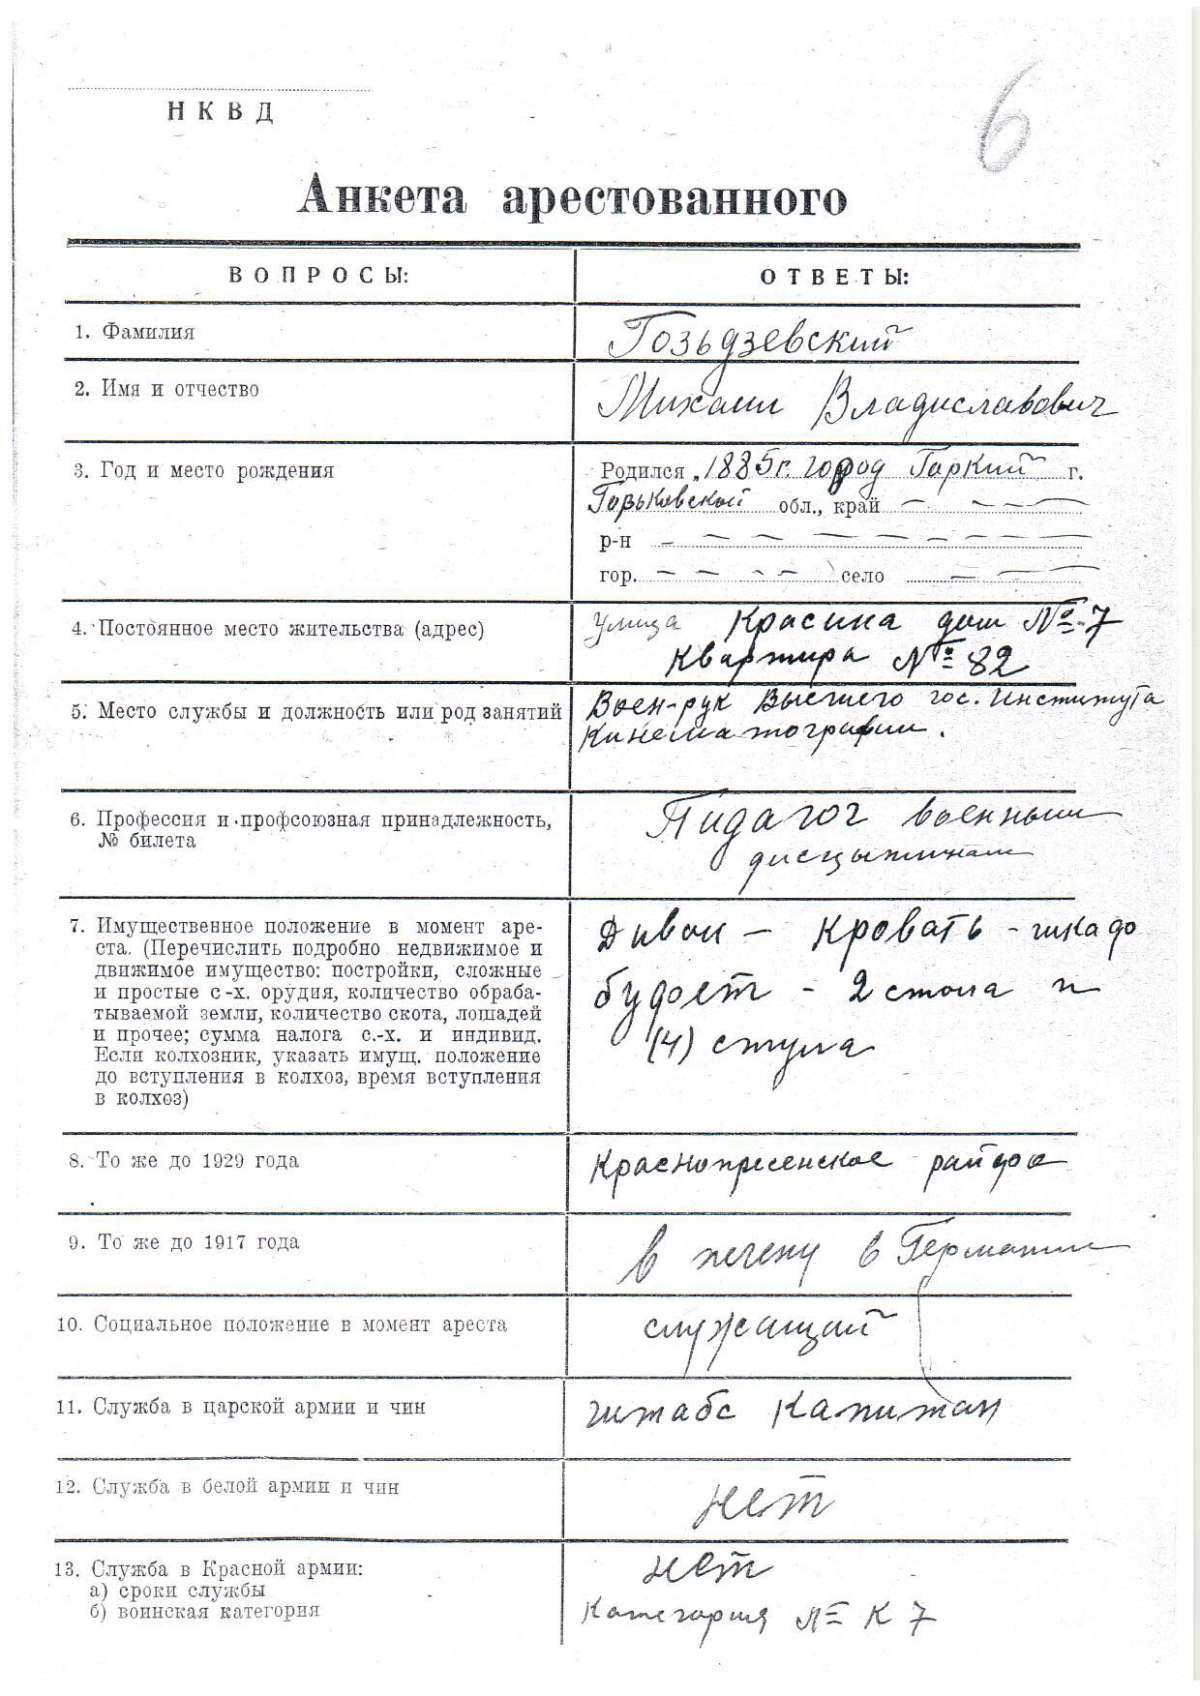 6
НКВД
Анкета арестованного
ВОПРОСЫ: ОТВЕТЫ:
1. Фамилия Гозьдзевский
2. Имя и отчество Михаил Владиславович
3. Год и место рождения Родился 1885г. город Горкий г.
Горьковской обл., край
р-н
гор. село
4. Постоянное место жительства (адрес) улица Красина дом № 7
квартира № 82
5. Место службы и должность или род занятий Воен-рук Высшего гос. Института
Кинематографии.
6. Профессия и профсоюзная принадлежность,
№ билета
Пидагог военным
дисцыплинам
7. Имущественное положение в момент аре-
ста. (Перечислить подробно недвижимое и
движимое имущество: постройки, сложные
и простые с-х. орудия, количество обраба-
тываемой земли, количество скота, лошадей
и прочее; сумма налога с.-х. и индивид.
Если колхозник, указать имущ. положение
до вступления в колхоз, время вступления
в колхоз)
Диван — кровать -
- 2 стола и
(4) стула
8. То же до 1929 года Краснопресенское
9. То же до 1917 года в Германии
10. Социальное положение в момент ареста служащий
11. Служба в царской армии и чин штабс капитан
12. Служба в белой армии и чин нет
13. Служба в Красной армии: нет
а) сроки службы
б) воинская категория Категория № К 7